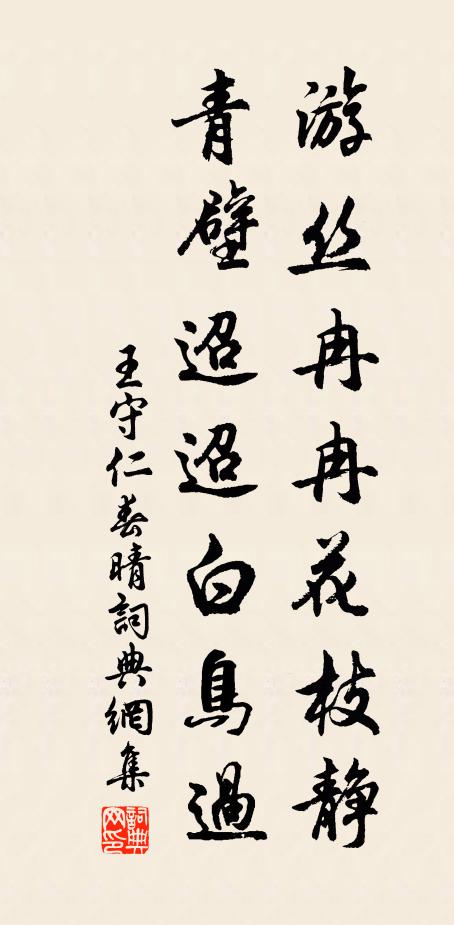 游丝冉冉花枝静
青壁迢迢白鳥過
王守仁春晴詞典網集
詞典网印